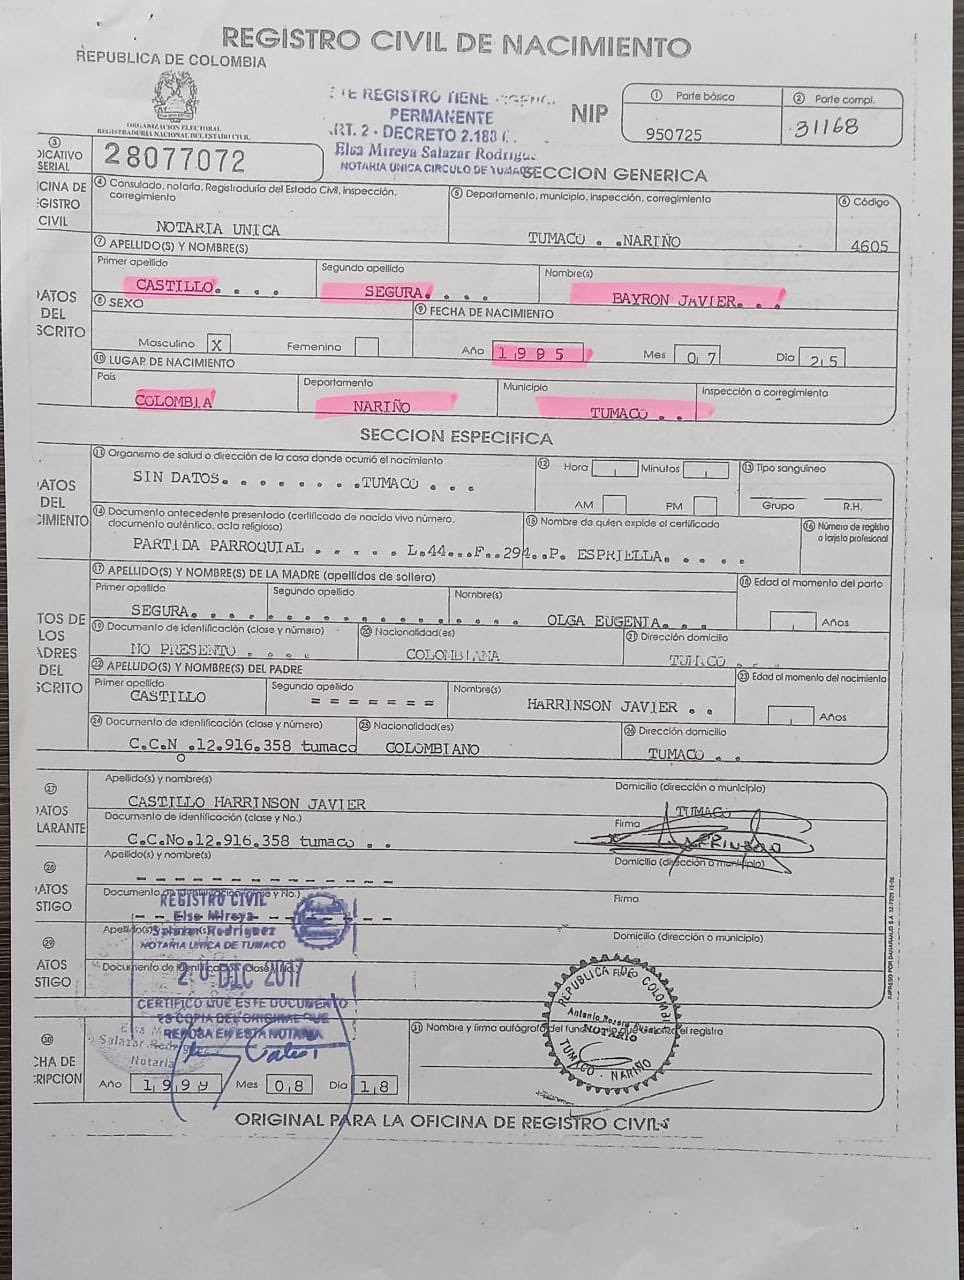 REGISTRO CIVIL DE NACIMIENTO
REPUBLICA DE COLOMBIA
ORGANIZACION ELECTORAL
REGISTRADURIA NACIONAL DEL ESTADO CIVIL
TE REGISTRO TIENE
PERMANENTE
RT. 2 - DECRETO 2.188
Elsa Mireya Salazar Rodrigue
NOTARIA UNICA CIRCULO DE TUMACO
NIP
① Parte básica
② Parte compl.
950725
31168
③
DICATIVO
SERIAL
28077072
SECCION GENERICA
CINA DE
GISTRO
CIVIL
④ Consulado, notaría, Registraduría del Estado Civil, inspección,
corregimiento
NOTARIA UNICA
⑤ Departamento, municipio, inspección, corregimiento
TUMACO . . NARIÑO
⑥ Código
4605
⑦ APELLIDO(S) Y NOMBRE(S)
Primer apellido
Segundo apellido
Nombre(s)
CASTILLO. . . .
SEGURA. . . .
BAYRON JAVIER. . .
ATOS
DEL
SCRITO
⑧ SEXO
Masculino X
Femenino
⑨ FECHA DE NACIMIENTO
Año 1985
Mes 07
Día 25
⑩ LUGAR DE NACIMIENTO
País
Departamento
Municipio
Inspección o corregimiento
COLOMBIA
NARIÑO
TUMACO . .
SECCION ESPECIFICA
ATOS
DEL
CIMIENTO
⑪ Organismo de salud o dirección de la casa donde ocurrió el nacimiento
SIN DATOS. . . . . . . .TUMACO . . .
⑫ Hora
Minutos
AM
PM
⑬ Tipo sanguíneo
Grupo
R.H.
⑭ Documento antecedente presentado (certificado de nacido vivo número,
documento auténtico, acta religiosa)
⑮ Nombre de quien expide el certificado
⑯ Número de registro
o tarjeta profesional
PARTIDA PARROQUIAL . . . . . L.44...F..294..P. ESPRIELLA. . . . .
TOS DE
LOS
ADRES
DEL
SCRITO
⑰ APELLIDO(S) Y NOMBRE(S) DE LA MADRE (apellidos de soltera)
Primer apellido
Segundo apellido
Nombre(s)
SEGURA. . . . . . . . . . . . . . . . OLGA EUGENIA. . .
⑱ Edad al momento del parto
Años
⑲ Documento de identificación (clase y número)
⑳ Nacionalidad(es)
㉑ Dirección domicilio
NO PRESENTO . . . .
COLOMBIANA
TUMACO . .
㉒ APELLIDO(S) Y NOMBRE(S) DEL PADRE
Primer apellido
Segundo apellido
Nombre(s)
CASTILLO
= = = = = = =
HARRINSON JAVIER . .
㉓ Edad al momento del nacimiento
Años
㉔ Documento de identificación (clase y número)
㉕ Nacionalidad(es)
㉖ Dirección domicilio
C.C.No.12.916.358 tumaco
COLOMBIANO
TUMACO . .
㉗
ATOS
LARANTE
Apellido(s) y nombre(s)
CASTILLO HARRINSON JAVIER
Domicilio (dirección o municipio)
TUMACO
Documento de identificación (clase y No.)
C.C.No.12.916.358 tumaco . .
Firma
㉘
ATOS
STIGO
Apellido(s) y nombre(s)
Domicilio (dirección o municipio)
Documento de identificación (clase y No.)
Firma
REGISTRO CIVIL
Elsa Mireya
Salazar Rodriguez
NOTARIA UNICA DE TUMACO
20 DIC 2017
CERTIFICO QUE ESTE DOCUMENTO
ES COPIA DEL ORIGINAL QUE
REPOSA EN ESTA NOTARIA
㉙
ATOS
STIGO
Apellido(s)
Domicilio (dirección o municipio)
Documento de identificación
Firma
REPUBLICA DE COLOMBIA
NOTARIO
TUMACO - NARIÑO
Salazar
Notaria
㉚
CHA DE
CRIPCION
Año 1999
Mes 08
Día 18
㉛ Nombre y firma autógrafa del funcionario que autoriza el registro
ORIGINAL PARA LA OFICINA DE REGISTRO CIVIL